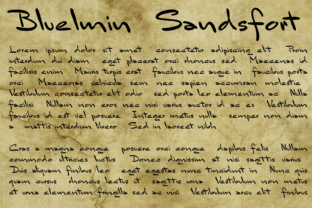 Bluelmin Sandsfort
Lorem ipsum dolor sit amet consectetur adipiscing elit Proin
interdum dui diam eget placerat orci rhoncus sed Maecenas id
facilisis enim Mauris turpis erat faucibus nec augue in faucibus porta
orci Maecenas vehicula sem nec ex sapien accumsan molestie
Vestibulum consectetur elit odio sed porta leo elementum ac Nulla
facilisi Nullam non eros nec nisi varius auctor id ac ex Vestibulum
faucibus id est vel posuere Integer metus nulla semper non diam
a mattis interdum libero Sed in laoreet nibh
Cras a magna congue posuere orci congue dapibus felis Nullam
commodo ultricies luctus Donec dignissim at nisi sagittis varius
Duis aliquam finibus leo eget egestas nunc tincidunt in Nunc quis
quam cursus rhoncus lectus et sagittis urna Vestibulum non metus
et urna elementum fringilla sed ac nisi Vestibulum arcu elit finibus